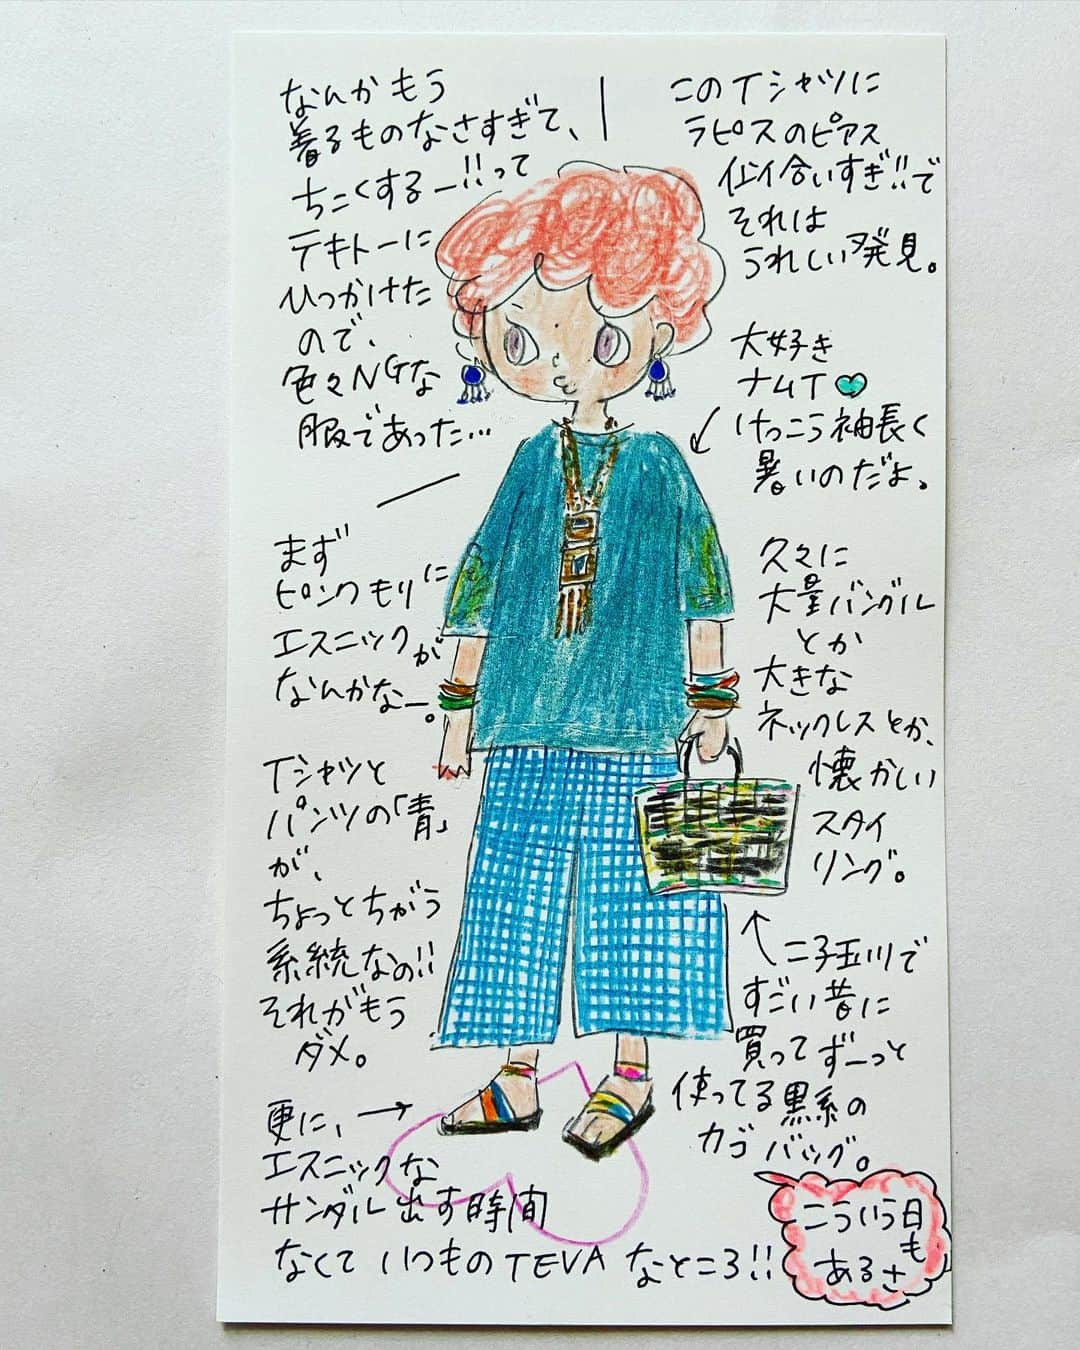 なんかもう
着るものなさすぎて、
ちこくするー!!って
テキトーに
ひっかけた
ので、
色々NGな
服であった…
まず
ピンクもりに
エスニックが
なんかなー。
Tシャツと
パンツの「青」
が、
ちょっとちがう
系統なの!!
それがもう
ダメ。
更に、
エスニックな
サンダル出す時間
なくていつものTEVAなところ!!
このTシャツに
ラピスのピアス
似合いすぎ!!で
それは
うれしい発見。
大好き
ナムT
けっこう袖長く
暑いのだよ。
久々に
大量バングル
とか
大きな
ネックレスとか、
懐かしい
スタイ
リング。
二子玉川で
すごい昔に
買ってずーっと
使ってる黒系の
カゴバッグ。
こういう日
も
あるさ